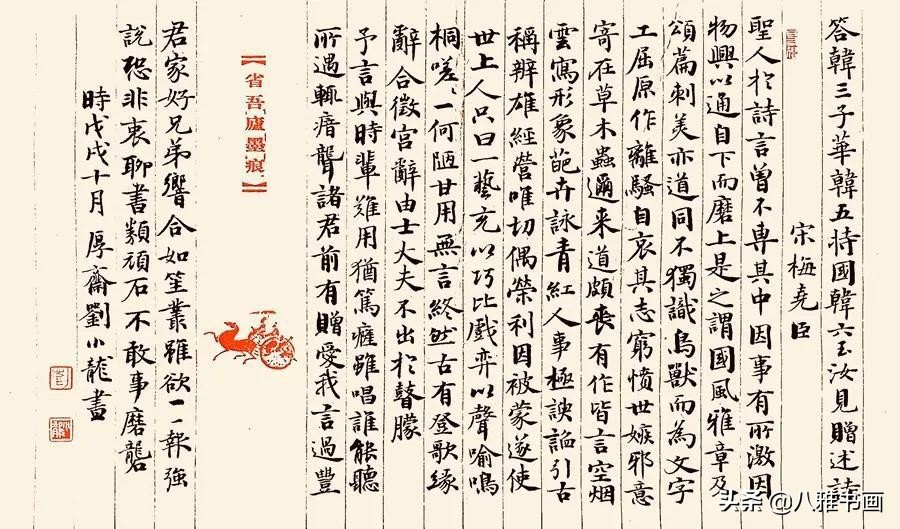 答韓三子華韓五持國韓六玉汝見贈述詩
宋梅堯臣
聖人於詩言曾不專其中因事有所激因
物興以通自下而磨上是之謂國風雅章及
頌篇刺美亦道同不獨識鳥獸而為文字
工屈原作離騷自哀其志窮憤世嫉邪意
寄在草木蟲邇来道頗喪有作皆言空烟
雲寫形象葩卉詠青紅人事極諛諂引古
稱辨雄經營唯切偶榮利因被蒙遂使
世上人只曰一藝充以巧比戲弈以聲喻鳴
桐嗟〻一何陋甘用無言終然古有登歌緣
辭合徵宮辭由士大夫不出於瞽矇
予言與時輩難用猶篤癃雖唱誰能聽
所遇輒瘖聾諸君前有贈愛我言過豐
【省吾廬墨痕】
君家好兄弟響合如笙叢雖欲一一報強
說恐非衷聊書類頑石不敢事磨礱
時戊戌十月 厚齋劉小龍書
头条@八雅书画